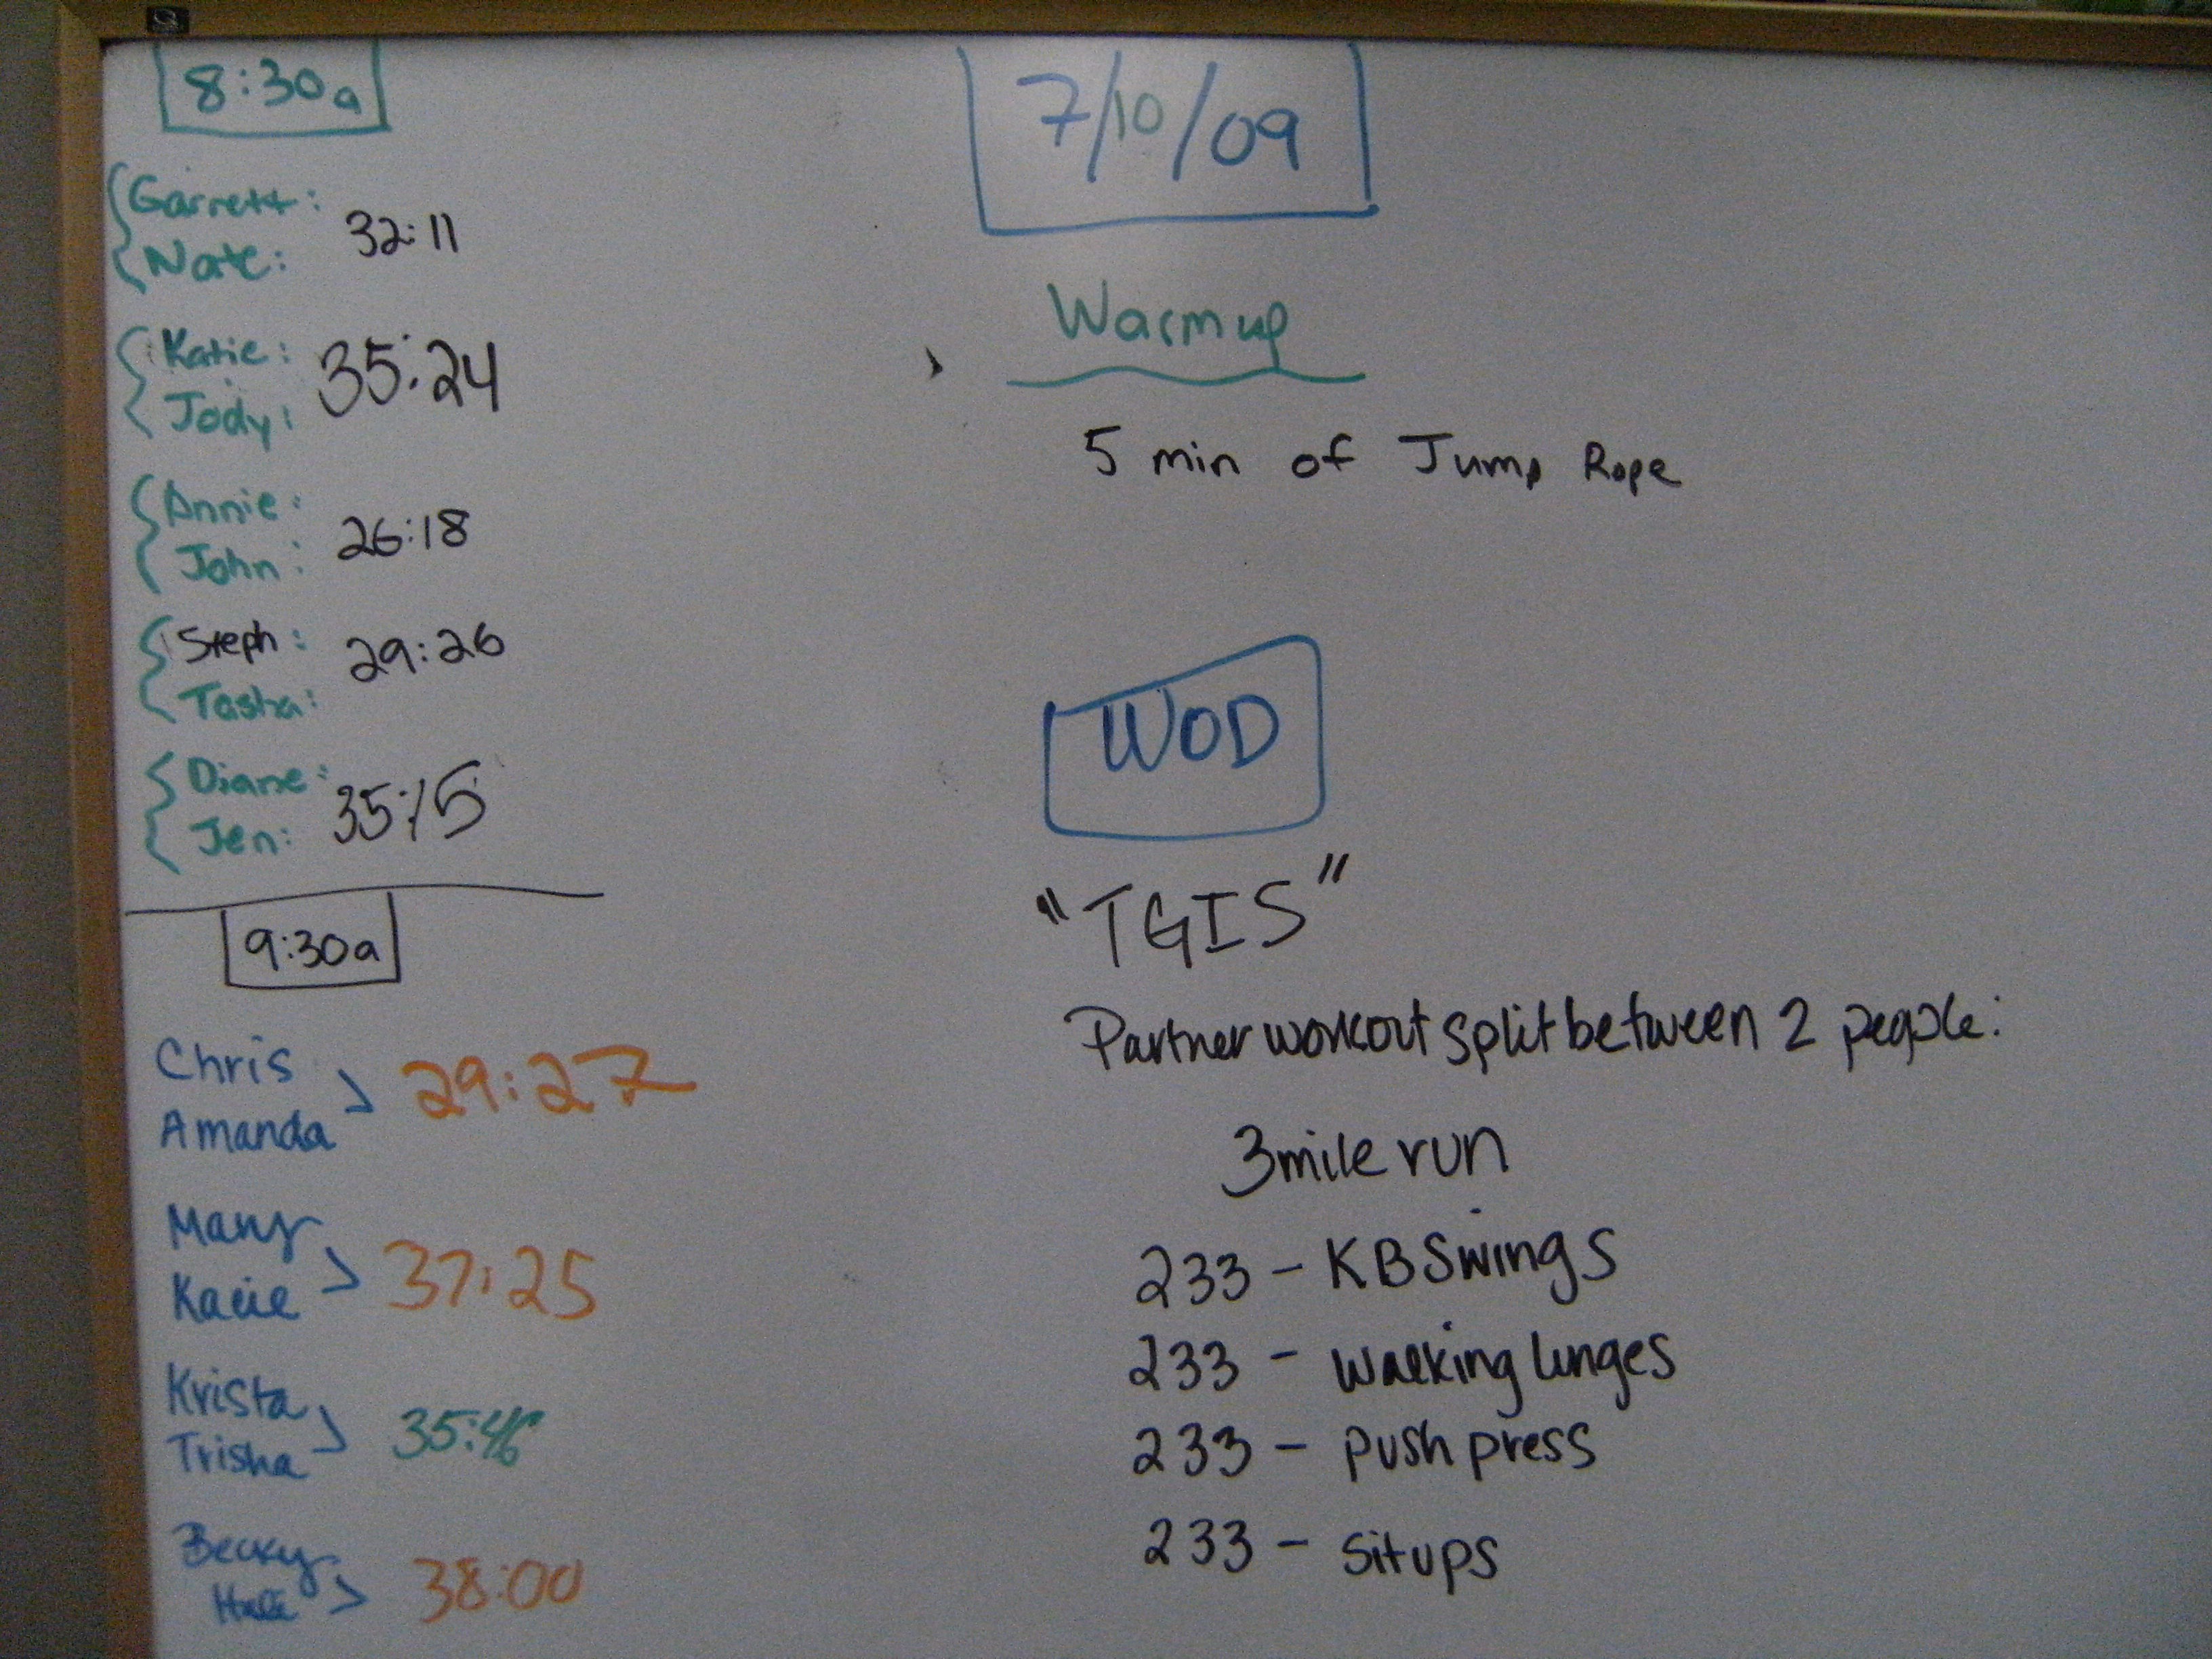 8:30a
Garrett:
Nate:
32:11
Katie:
Jody:
35:24
Annie:
John:
26:18
Steph:
Tasha:
29:26
Diane:
Jen:
35:15
9:30a
Chris
Amanda
29:27
Mary
Kacie
37:25
Krista
Trisha
35:46
Becky
38:00
7/10/09
Warmup
5 min of Jump Rope
WOD
"TGIS"
Partner workout split between 2 people:
3 mile run
233 - KB Swings
233 - walking lunges
233 - push press
233 - situps